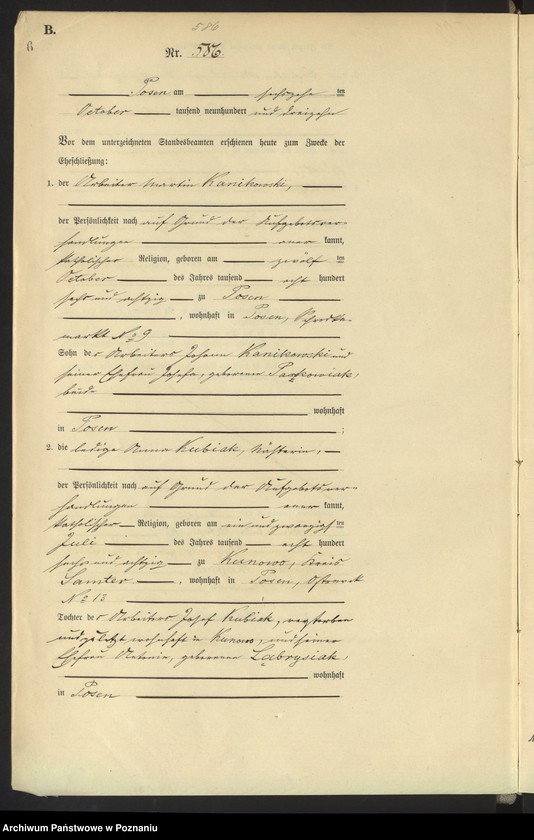 586
B.
6
Nr. 586.
Posen am sechszehn ten
October tausend neunhundert und dreizehn
Vor dem unterzeichneten Standesbeamten erschienen heute zum Zwecke der
Eheschließung:
1. der Arbeiter Martin Kanikowski,
der Persönlichkeit nach auf Grund der Aufgebotsver-
handlungen aner kannt,
katholischer Religion, geboren am zwölf ten
October des Jahres tausend acht hundert
sechs und achtzig zu Posen
, wohnhaft in Posen,
markt No 9
Sohn des Arbeiters Johann Kanikowski und
seiner Ehefrau Josefa, geborenen
beide
wohnhaft
in Posen ;
2. die ledige Anna Kubiak, Nähterin,
der Persönlichkeit nach auf Grund der Aufgebotsver-
handlungen aner kannt,
katholischer Religion, geboren am ein und zwanzigs ten
Juli des Jahres tausend acht hundert
sechs und achtzig zu Kunowo, Kreis
Samter , wohnhaft in Posen,
No 13
Tochter des Arbeiters Josef Kubiak, verstorben
und zuletzt wohnhaft in Kunowo, und seiner
Ehefrau Antonie, geborenen Labrysiak,
wohnhaft
in Posen
Archiwum Państwowe w Poznaniu